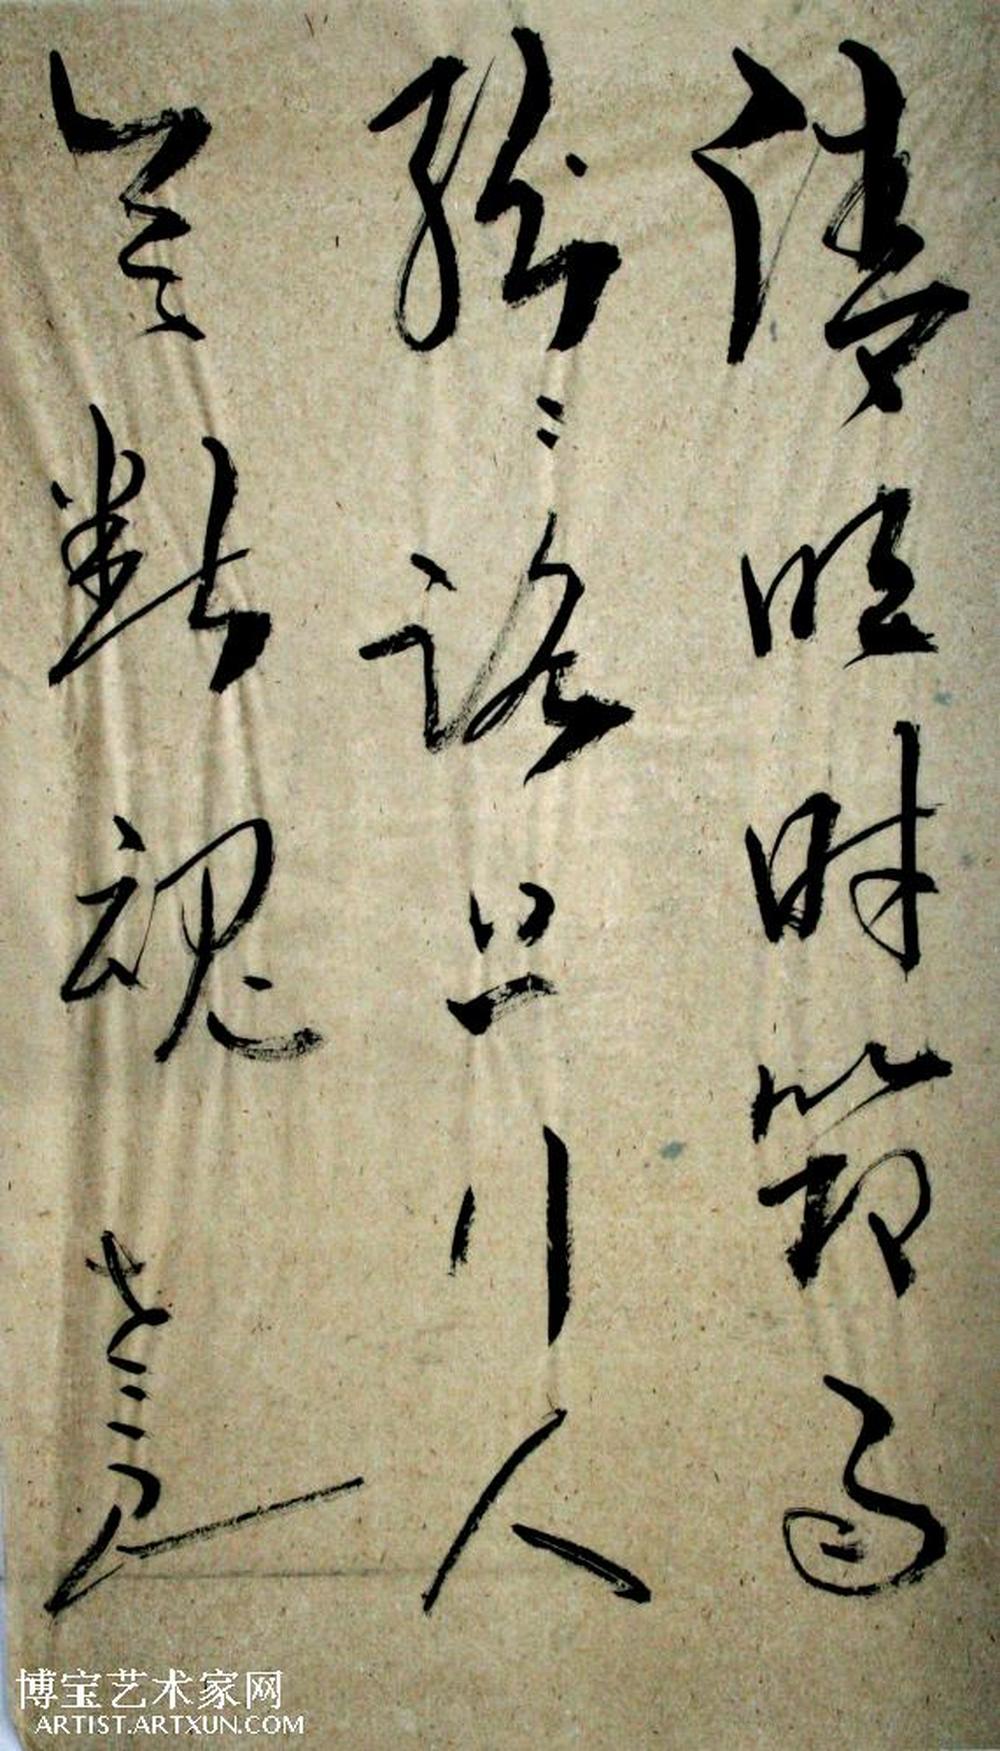 清明时節雨
紛〻路上行人
欲斷魂
博宝艺术家网
ARTIST.ARTXUN.COM